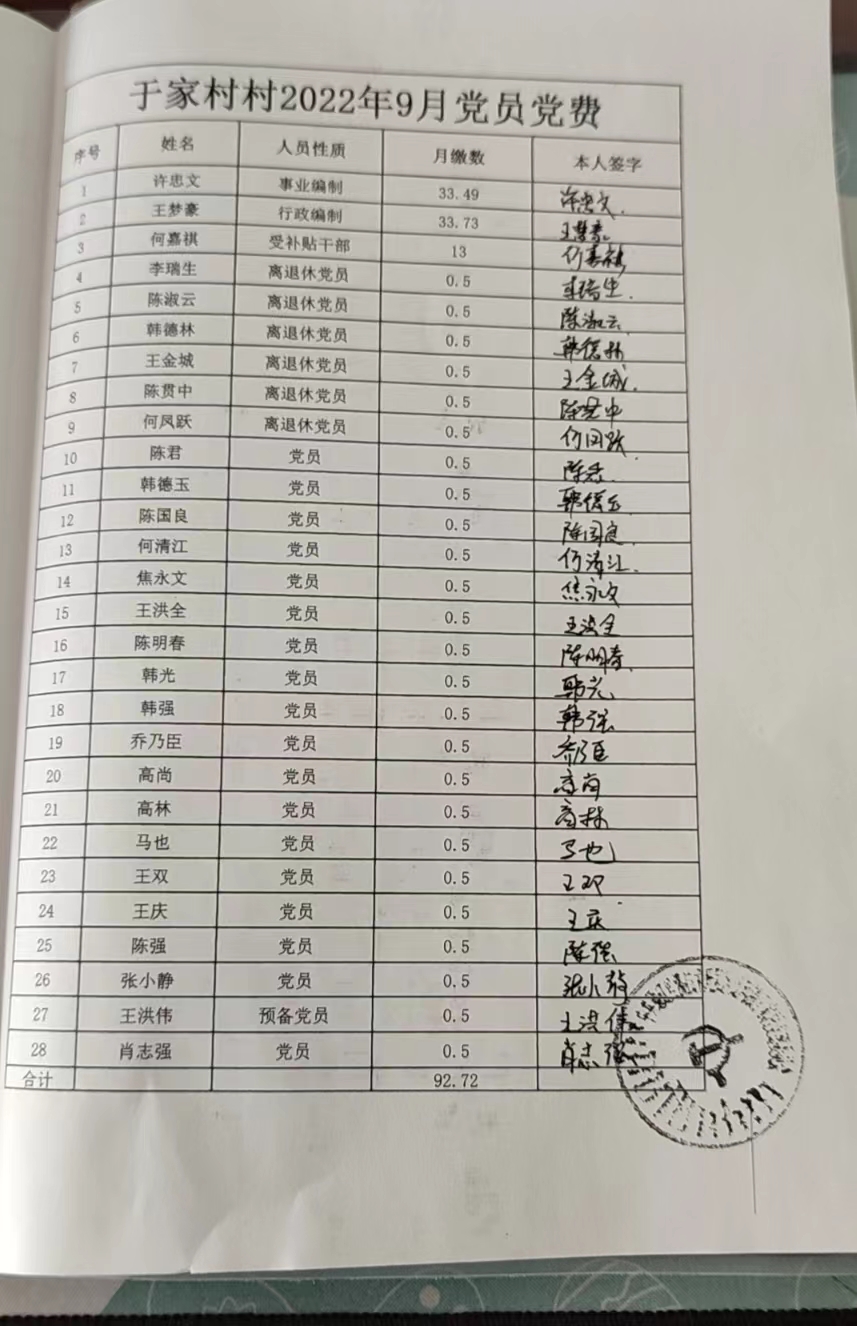 于家村村2022年9月党员党费
序号 姓名 人员性质 月缴数 本人签字
1 许忠文 事业编制 33.49 许忠文
2 王梦豪 行政编制 33.73 王梦豪
3 何嘉祺 受补贴干部 13 何嘉祺
4 李瑞生 离退休党员 0.5 李瑞生
5 陈淑云 离退休党员 0.5 陈淑云
6 韩德林 离退休党员 0.5 韩德林
7 王金城 离退休党员 0.5 王金城
8 陈贯中 离退休党员 0.5 陈贯中
9 何凤跃 离退休党员 0.5 何凤跃
10 陈君 党员 0.5 陈君
11 韩德玉 党员 0.5 韩德玉
12 陈国良 党员 0.5 陈国良
13 何清江 党员 0.5 何清江
14 焦永文 党员 0.5 焦永文
15 王洪全 党员 0.5 王洪全
16 陈明春 党员 0.5 陈明春
17 韩光 党员 0.5 韩光
18 韩强 党员 0.5 韩强
19 乔乃臣 党员 0.5 乔乃臣
20 高尚 党员 0.5 高尚
21 高林 党员 0.5 高林
22 马也 党员 0.5 马也
23 王双 党员 0.5 王双
24 王庆 党员 0.5 王庆
25 陈强 党员 0.5 陈强
26 张小静 党员 0.5 张小静
27 王洪伟 预备党员 0.5 王洪伟
28 肖志强 党员 0.5 肖志强
合计 92.72